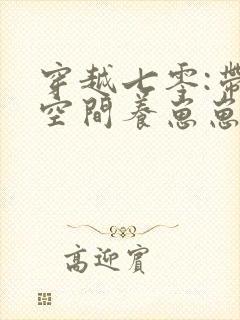 穿越七零:帶
空間養崽崽
高迎賓